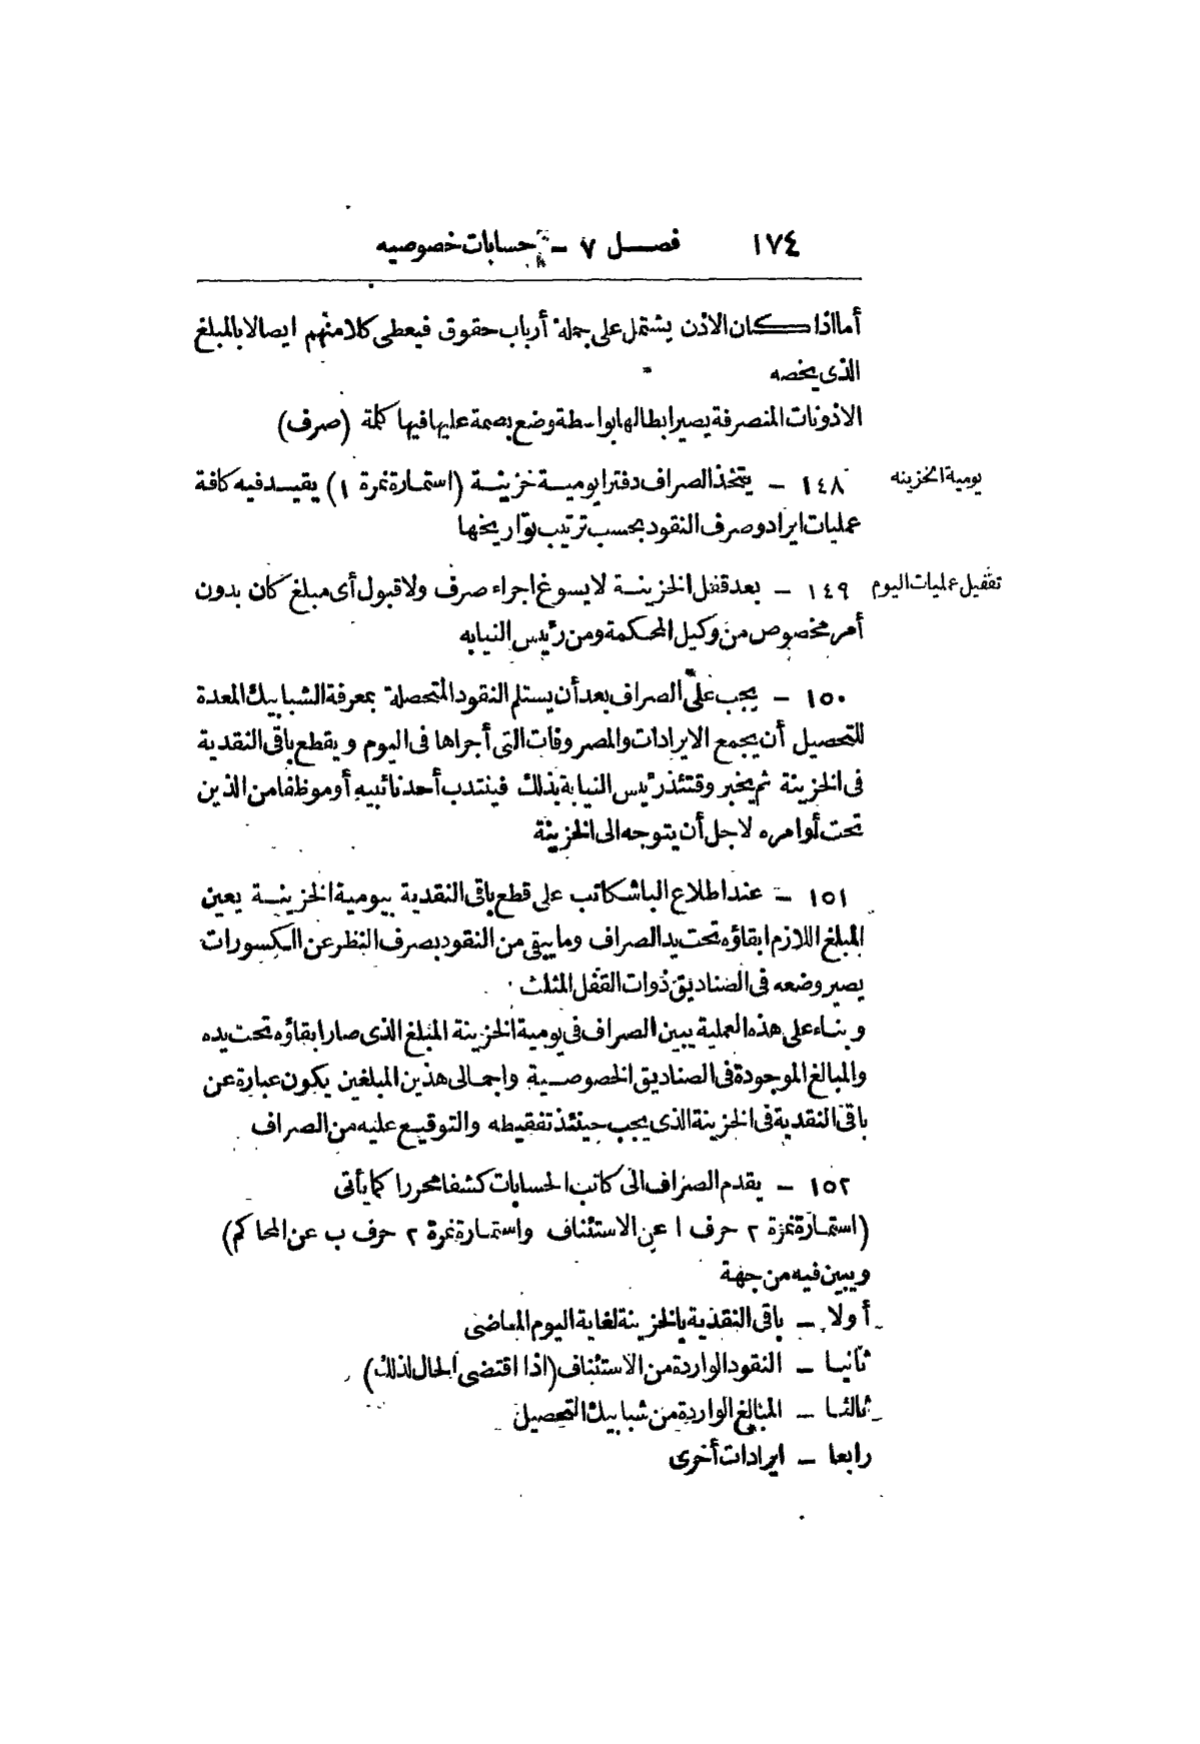 ١٧٤ فصل ٧ – حسابات خصوصيه
أما اذا كان الاذن يشتمل على جملة أرباب حقوق فيعطى كلا منهم ايصالا بالمبلغ
الذى يخصه
الاذونات المنصرفة يصير ابطالها بواسطة وضع بصمة عليها فيها كلمة (صرف)
يومية الخزينه
١٤٨ – يتخذ الصراف دفترا يومية خزينة (استمارة نمرة ١) يقيد فيه كافة
عمليات ايراد وصرف النقود بحسب ترتيب تواريخها
تقفيل عمليات اليوم
١٤٩ – بعد قفل الخزينة لا يسوغ اجراء صرف ولا قبول أى مبلغ كان بدون
أمر مخصوص من وكيل المحكمة ومن رئيس النيابه
١٥٠ – يجب على الصراف بعد أن يستلم النقود المتحصلة بمعرفة الشبابيك المعدة
للتحصيل أن يجمع الايرادات والمصروفات التى أجراها فى اليوم ويقطع باقى النقدية
فى الخزينة ثم يخبر وقتئذ رئيس النيابة بذلك فينتدب أحد نائبيه أو موظفا من الذين
تحت أوامره لاجل أن يتوجه الى الخزينة
١٥١ – عند اطلاع الباشكاتب على قطع باقى النقدية بيومية الخزينة يعين
المبلغ اللازم ابقاؤه تحت يد الصراف وما يبقى من النقود بصرف النظر عن الكسورات
يصير وضعه فى الصناديق ذوات القفل المثلث
وبناء على هذه العملية يبين الصراف فى يومية الخزينة المبلغ الذى صار ابقاؤه تحت يده
والمبالغ الموجودة فى الصناديق الخصوصية واجمالى هذين المبلغين يكون عبارة عن
باقى النقدية فى الخزينة الذى يجب حينئذ تفقيطه والتوقيع عليه من الصراف
١٥٢ – يقدم الصراف الى كاتب الحسابات كشفا محررا كما يأتى
(استمارة نمرة ٢ حرف ا عن الاستئناف واستمارة نمرة ٢ حرف ب عن المحاكم)
ويبين فيه من جهة
أولا – باقى النقدية بالخزينة لغاية اليوم الماضى
ثانيا – النقود الواردة من الاستئناف (اذا اقتضى الحال لذلك)
ثالثا – المبالغ الواردة من شبابيك التحصيل
رابعا – ايرادات أخرى